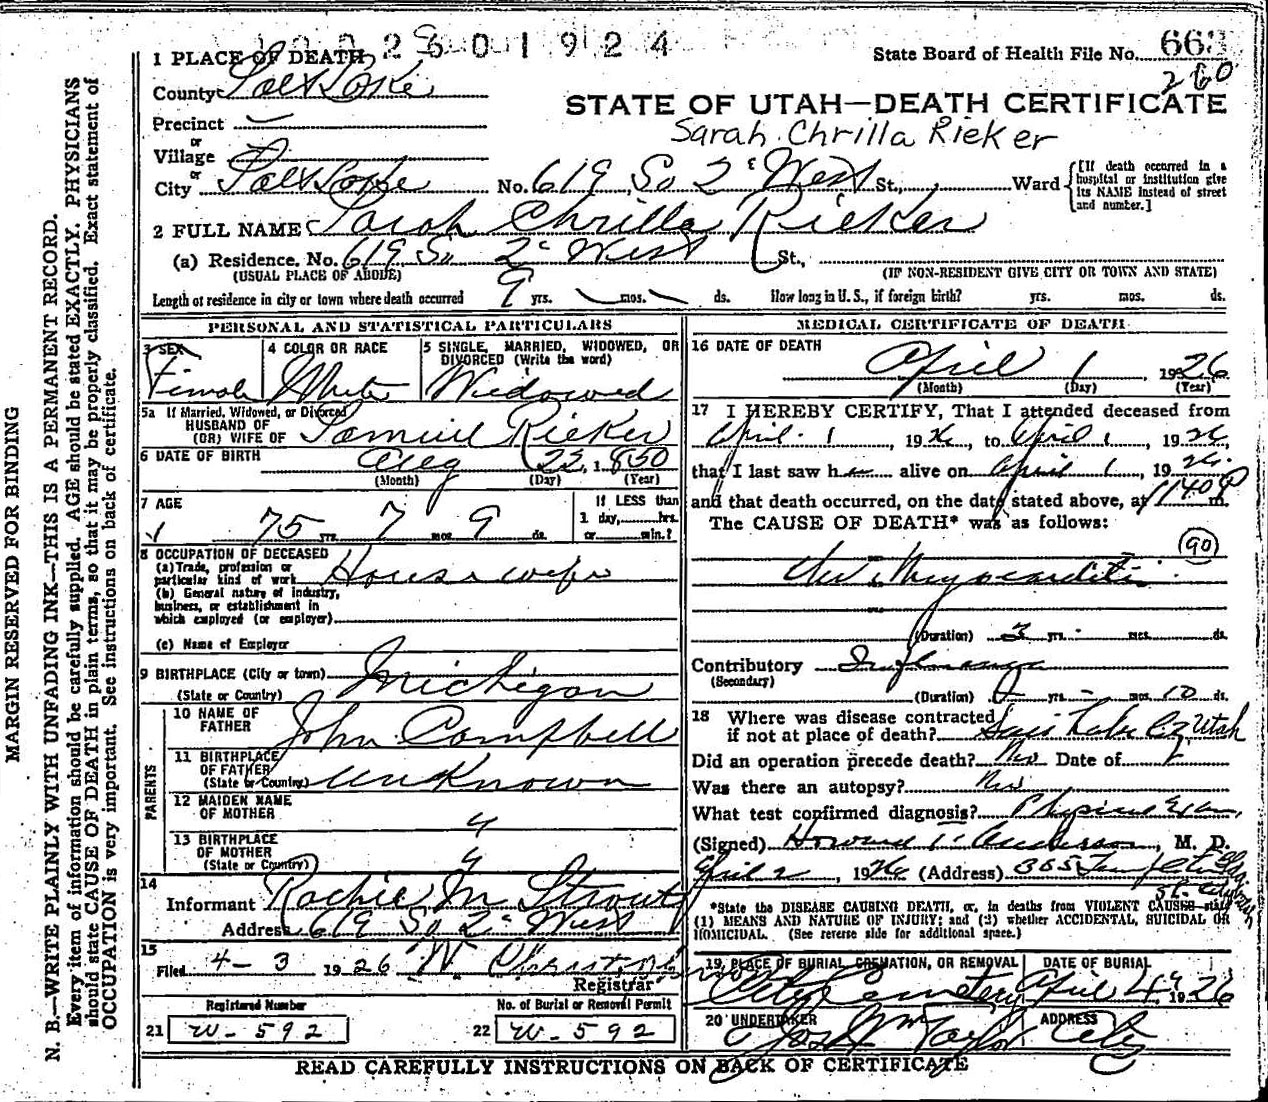 1 PLACE OF DEATH
State Board of Health File No.
County Salt Lake
260
STATE OF UTAH—DEATH CERTIFICATE
Precinct —
Sarah Chrilla Rieker
or
Village
or
City Salt Lake No. 619 So 2 West St., Ward
[If death occurred in a hospital or institution give its NAME instead of street and number.]
2 FULL NAME Sarah Chrilla Rieker
(a) Residence. No. 619 So 2 West St.,
(USUAL PLACE OF ABODE) (IF NON-RESIDENT GIVE CITY OR TOWN AND STATE)
Length of residence in city or town where death occurred 9 yrs. — mos. — ds. How long in U. S., if foreign birth? yrs. mos. ds.
PERSONAL AND STATISTICAL PARTICULARS
3 SEX Female
4 COLOR OR RACE White
5 SINGLE, MARRIED, WIDOWED, OR DIVORCED (Write the word) Widowed
5a If Married, Widowed, or Divorced
HUSBAND OF
(OR) WIFE OF Samuel Rieker
6 DATE OF BIRTH Aug 23, 1850
(Month) (Day) (Year)
7 AGE
75 yrs. 7 mos. 9 ds.
If LESS than
1 day, hrs.
or min.?
8 OCCUPATION OF DECEASED
(a) Trade, profession or
particular kind of work Housewife
(b) General nature of industry,
business, or establishment in
which employed (or employer)
(c) Name of Employer
9 BIRTHPLACE (City or town) Michigan
(State or Country)
PARENTS
10 NAME OF
FATHER John Campbell
11 BIRTHPLACE
OF FATHER Unknown
(State or Country)
12 MAIDEN NAME
OF MOTHER "
13 BIRTHPLACE
OF MOTHER "
(State or Country)
14
Informant M Strout
Address 619 So 2 West
15
Filed 4-3 1926 W.
Registrar
Registered Number
21 W-592
No. of Burial or Removal Permit
22 W-592
MEDICAL CERTIFICATE OF DEATH
16 DATE OF DEATH
April 1, 1926
(Month) (Day) (Year)
17 I HEREBY CERTIFY, That I attended deceased from
April 1, 1926, to April 1, 1926,
that I last saw her alive on April 1, 1926.
and that death occurred, on the date stated above, at 1140 P m.
The CAUSE OF DEATH* was as follows:
(90)
Myocarditis
(Duration) 3 yrs. - mos. ds.
Contributory Influenza
(Secondary)
(Duration) 0 yrs. - mos. 10 ds.
18 Where was disease contracted
if not at place of death? Salt Lake Cy Utah
Did an operation precede death? No Date of
Was there an autopsy? No
What test confirmed diagnosis? Physical Exam,
(Signed) Howard Anderson, M. D.
April 2, 1926 (Address) 305
*State the DISEASE CAUSING DEATH, or, in deaths from VIOLENT CAUSES state
(1) MEANS AND NATURE OF INJURY; and (2) whether ACCIDENTAL, SUICIDAL OR
HOMICIDAL. (See reverse side for additional space.)
19 PLACE OF BURIAL, CREMATION, OR REMOVAL
City Cemetery
DATE OF BURIAL
April 4, 1926
20 UNDERTAKER
Jos Wm Taylor
ADDRESS
City
READ CAREFULLY INSTRUCTIONS ON BACK OF CERTIFICATE
MARGIN RESERVED FOR BINDING
N. B.—WRITE PLAINLY WITH UNFADING INK—THIS IS A PERMANENT RECORD.
Every item of information should be carefully supplied. AGE should be stated EXACTLY. PHYSICIANS
should state CAUSE OF DEATH in plain terms, so that it may be properly classified. Exact statement of
OCCUPATION is very important. See instructions on back of certificate.